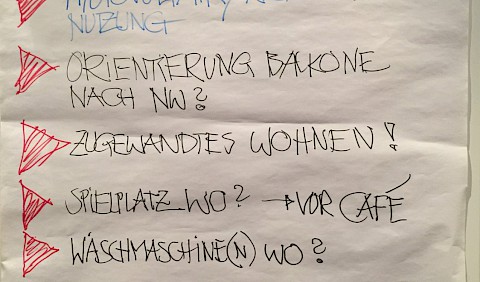 NUTZUNG
ORIENTIERUNG BALKONE
NACH NW?
ZUGEWANDTES WOHNEN!
SPIELPLATZ WO? → VOR CAFÉ
WÄSCHMASCHINE(N) WO?